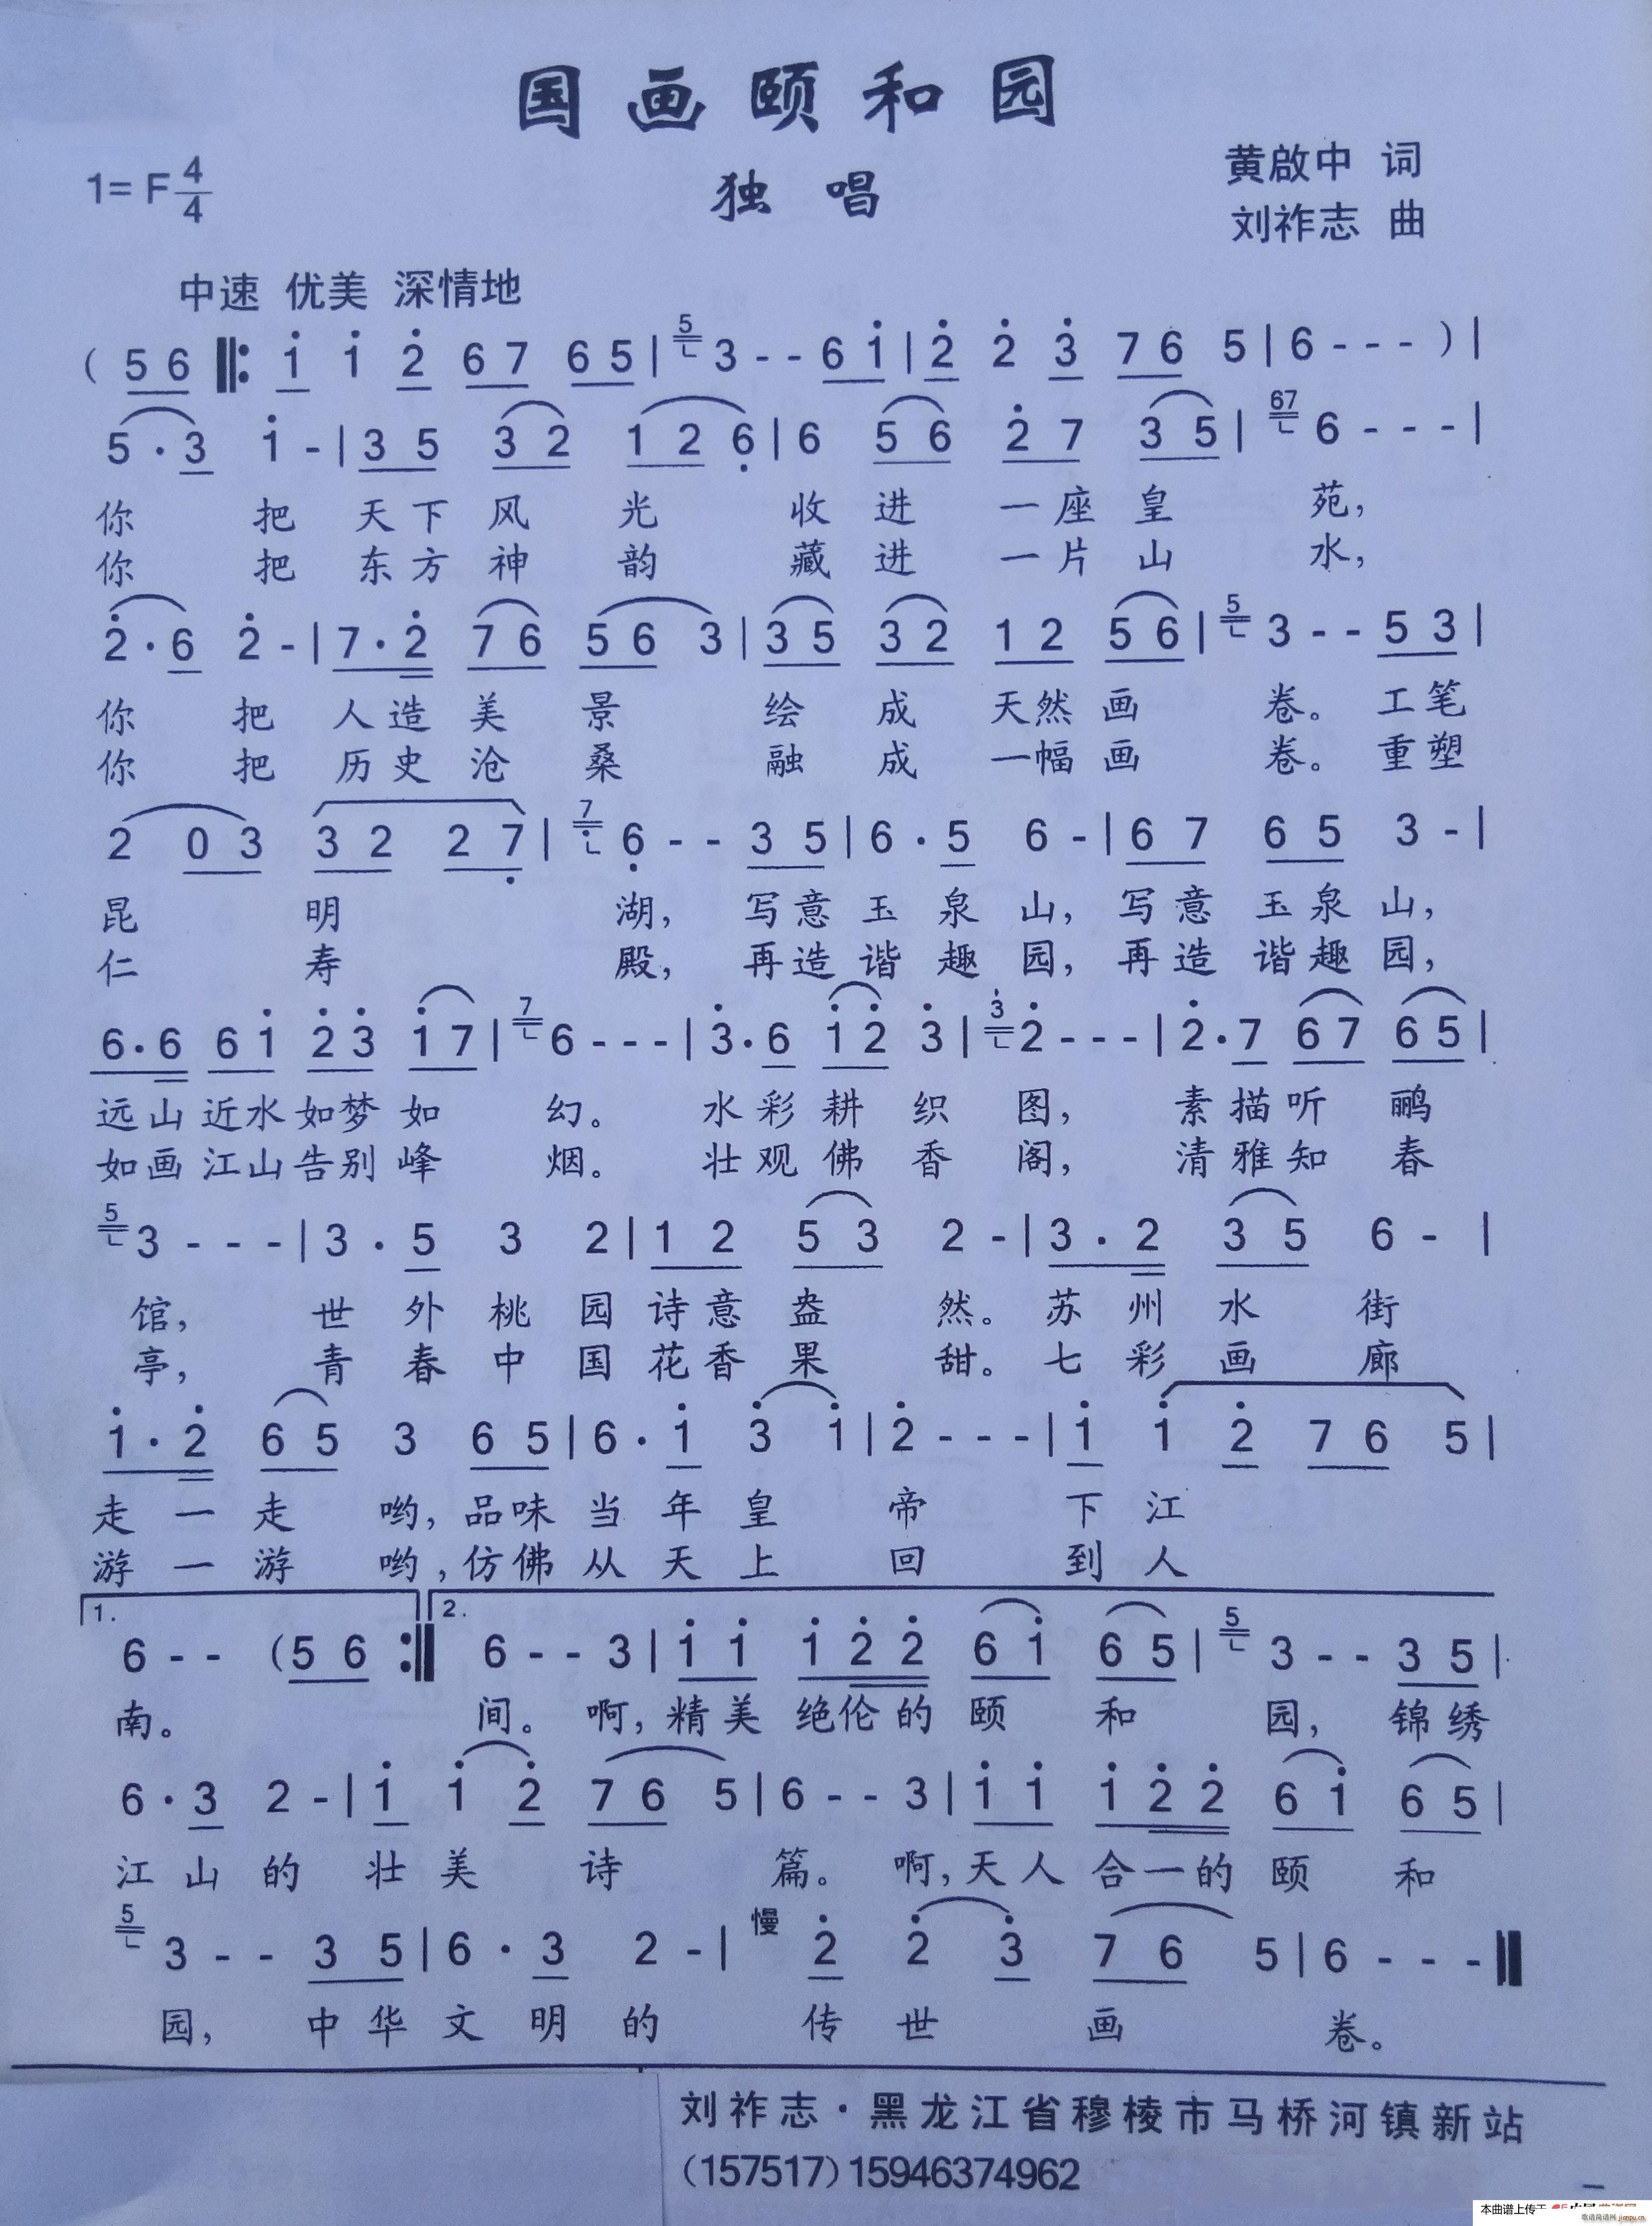 国画颐和园
1=F 4/4
独唱
黄啟中 词
刘祚志 曲
中速 优美 深情地
( 5 6 ‖: i i 2 6 7 6 5 | 5 3 - - 6 i | 2 2 3 7 6 5 | 6 - - - ) |
5 · 3 i - | 3 5 3 2 1 2 6 | 6 5 6 2 7 3 5 | 67 6 - - - |
你 把 天下 风 光 收 进 一座 皇 苑，
你 把 东方 神 韵 藏 进 一片 山 水，
2 · 6 2 - | 7 · 2 7 6 5 6 3 | 3 5 3 2 1 2 5 6 | 5 3 - - 5 3 |
你 把 人造 美 景 绘 成 天然 画 卷。 工笔
你 把 历史 沧 桑 融 成 一幅 画 卷。 重塑
2 0 3 3 2 2 7 | 7 6 - - 3 5 | 6 · 5 6 - | 6 7 6 5 3 - |
昆 明 湖， 写意 玉 泉 山， 写意 玉泉 山，
仁 寿 殿， 再造 谐 趣 园， 再造 谐趣 园，
6 · 6 6 i 2 3 i 7 | 7 6 - - - | 3 · 6 i 2 3 | 3 2 - - - | 2 · 7 6 7 6 5 |
远山 近水 如梦 如 幻。 水彩 耕 织 图， 素描听 鹂
如画 江山 告别 峰 烟。 壮观 佛 香 阁， 清雅知 春
5 3 - - - | 3 · 5 3 2 | 1 2 5 3 2 - | 3 · 2 3 5 6 - |
馆， 世 外 桃 园 诗意 盎 然。 苏 州 水 街
亭， 青 春 中 国 花香 果 甜。 七 彩 画 廊
i · 2 6 5 3 6 5 | 6 · i 3 i | 2 - - - | i i 2 7 6 5 |
走 一 走 哟， 品味 当 年 皇 帝 下 江
游 一 游 哟， 仿佛 从 天 上 回 到 人
1. 2.
6 - - (5 6 :‖ 6 - - 3 | i i i 2 2 6 i 6 5 | 5 3 - - 3 5 |
南。 间。 啊， 精美 绝伦的 颐 和 园， 锦绣
6 · 3 2 - | i i 2 7 6 5 | 6 - - 3 | i i i 2 2 6 i 6 5 |
江 山 的 壮 美 诗 篇。 啊， 天人 合一的 颐 和
慢
5 3 - - 3 5 | 6 · 3 2 - | 2 2 3 7 6 5 | 6 - - - ‖
园， 中华 文 明 的 传 世 画 卷。
刘祚志·黑龙江省穆棱市马桥河镇新站
(157517)15946374962
本曲谱上传于
歌谱简谱网 jianpu.cn